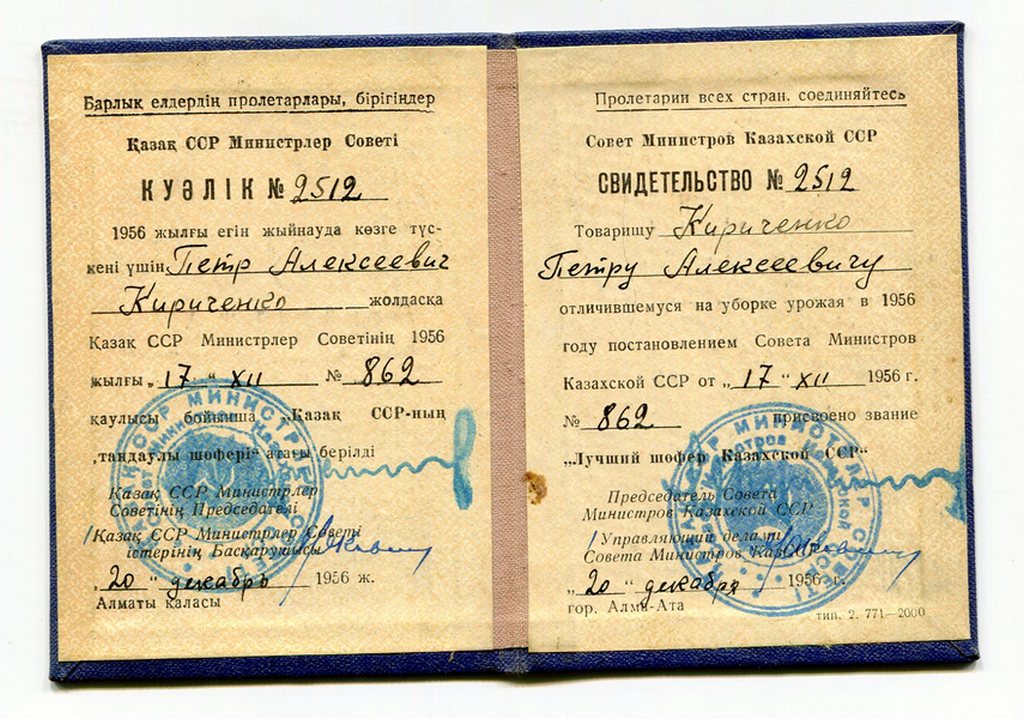 Барлық елдердің пролетарлары, бірігіңдер
Қазақ ССР Министрлер Советі
КУӘЛІК № 2512
1956 жылғы егін жыйнауда көзге түс-
кені үшін Петр Алексеевич
Кириченко жолдасқа
Қазақ ССР Министрлер Советінің 1956
жылғы „17" XII № 862
қаулысы бойынша „Қазақ ССР-ның
таңдаулы шофері" атағы берілді
Қазақ ССР Министрлер
Советінің Председателі
Қазақ ССР Министрлер Советі
істерінің Басқарушысы
„20" декабрь 1956 ж.
Алматы қаласы
Пролетарии всех стран, соединяйтесь
Совет Министров Казахской ССР
СВИДЕТЕЛЬСТВО № 2512
Товарищу Кириченко
Петру Алексеевичу
отличившемуся на уборке урожая в 1956
году постановлением Совета Министров
Казахской ССР от „17" XII 1956 г.
№ 862 присвоено звание
„Лучший шофер Казахской ССР"
Председатель Совета
Министров Казахской ССР
Управляющий делами
Совета Министров КазССР
„20" декабря 1956 г.
гор. Алма-Ата
тип. 2. 771—2000